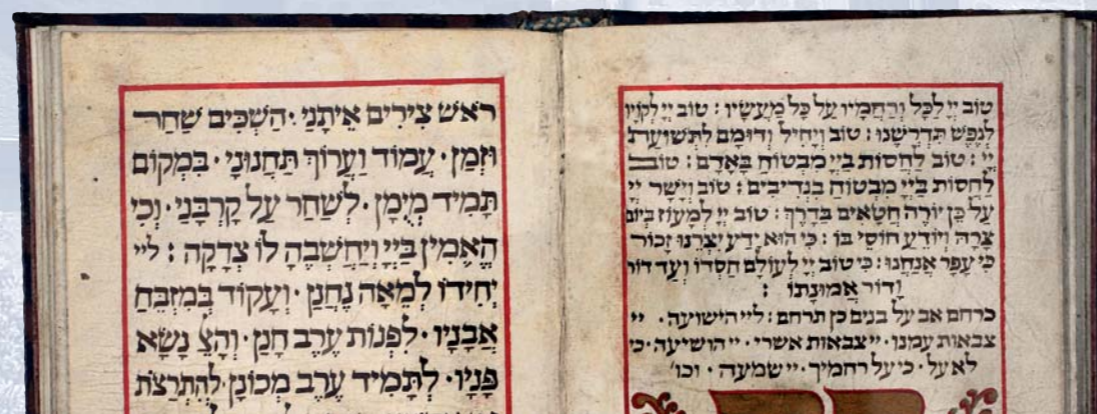 טוֹב יְיָ לַכֹּל וְרַחֲמָיו עַל כָּל מַעֲשָׂיו : טוֹב יְיָ לְקֹוָיו
לְנֶפֶשׁ תִּדְרְשֶׁנּוּ : טוֹב וְיָחִיל וְדוּמָם לִתְשׁוּעַת
יְיָ : טוֹב לַחֲסוֹת בַּיְיָ מִבְּטוֹחַ בָּאָדָם : טוֹב
לַחֲסוֹת בַּיְיָ מִבְּטוֹחַ בִּנְדִיבִים : טוֹב וְיָשָׁר יְיָ
עַל כֵּן יוֹרֶה חַטָּאִים בַּדָּרֶךְ : טוֹב יְיָ לְמָעוֹז בְּיוֹם
צָרָה וְיוֹדֵעַ חוֹסֵי בוֹ : כִּי הוּא יָדַע יִצְרֵנוּ זָכוּר
כִּי עָפָר אֲנָחְנוּ : כִּי טוֹב יְיָ לְעוֹלָם חַסְדּוֹ וְעַד דּוֹר
וָדוֹר אֱמוּנָתוֹ :
כרחם אב על בנים כן תרחם : ליי הישועה · יי
צבאות עמנו · יי צבאות אשרי · יי הושיעה · כי
לא על · כי על רחמיך · יי שמעה · וכו'
רֹאשׁ צִירִים אֵיתָנַי · הַשְׁכִּים שַׁחַר
וּזְמַן · עֲמוֹד וַעֲרוֹךְ תַּחֲנוּנַי · בִּמְקוֹם
תָּמִיד מְיֻמָּן · לְשַׁחַר עַל קָרְבָּנַי · וְכִי
הֶאֱמִין בַּיְיָ וַיַּחְשְׁבֶהָ לוֹ צְדָקָה : ליי
יְחִידוֹ לְמֵאָה נֶחֱנַן · וְעָקוֹד בְּמִזְבַּח
אֲבָנָיו · לִפְנוֹת עֶרֶב חָנַן · וְהֵצֵ נָשָׂא
פָּנָיו · לְתָמִיד עֶרֶב מְכוֹנָן · לְהִתְרַצֹּת